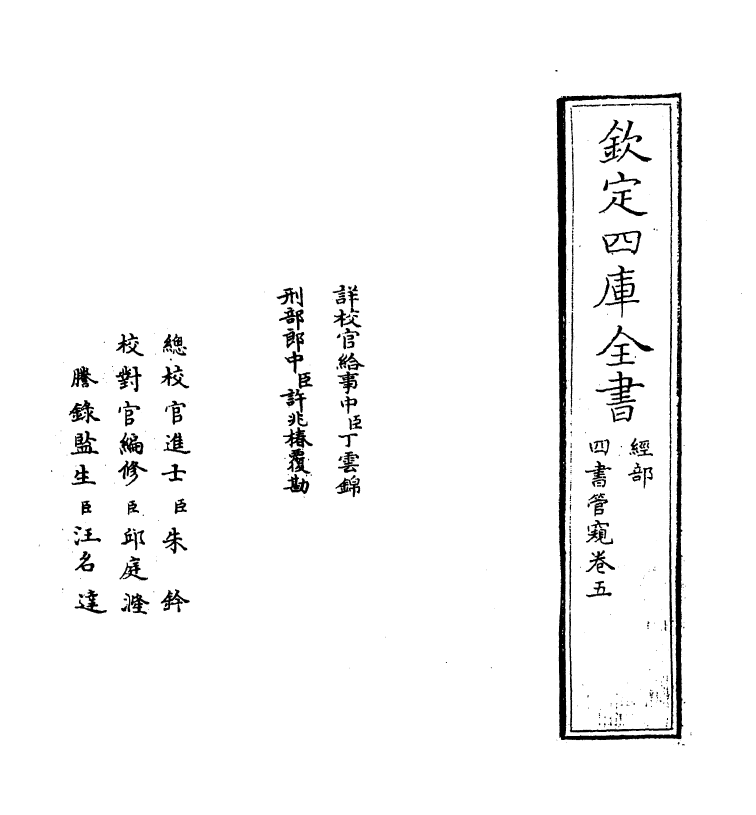 欽定四庫全書
經部
四書管窺卷五
詳校官給事中臣丁雲錦
刑部郎中臣許兆椿覆勘
總校官進士臣朱鈐
校對官編修臣邱庭漋
謄錄監生臣汪名達